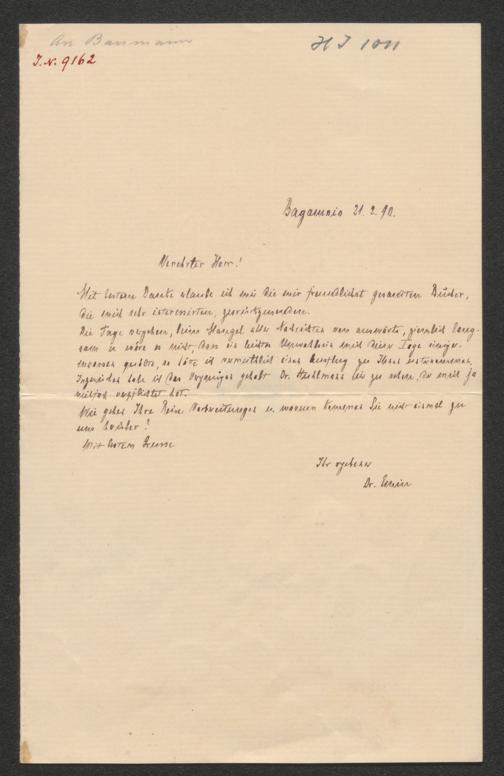 An Baumann
J.N. 9162
HJ 1011
Bagamoio 21.2.90.
Verehrter Herr!
Mit bestem Danke erlaube ich mir die mir freundlichst gesandten Bücher,
die mich sehr interessirten, zurückzusenden.
Die Tage vergehen, beim Mangel aller Nachrichten von auswärts, ziemlich lang-
sam u. wäre es nicht, dass ein leichtes Unwohlsein mich diese Tage
, so hätte ich vermuthlich einen Ausflug zu Ihnen unternommen.
habe ich das Vergnügen gehabt Dr. bei zu sehen, der mich ja
hat.
Wie gehen Ihre Reise Vorbereitungen u. warum kommen Sie nicht einmal zu
uns herüber!
Mit bestem Grusse
Ihr ergebener
Dr. Emin